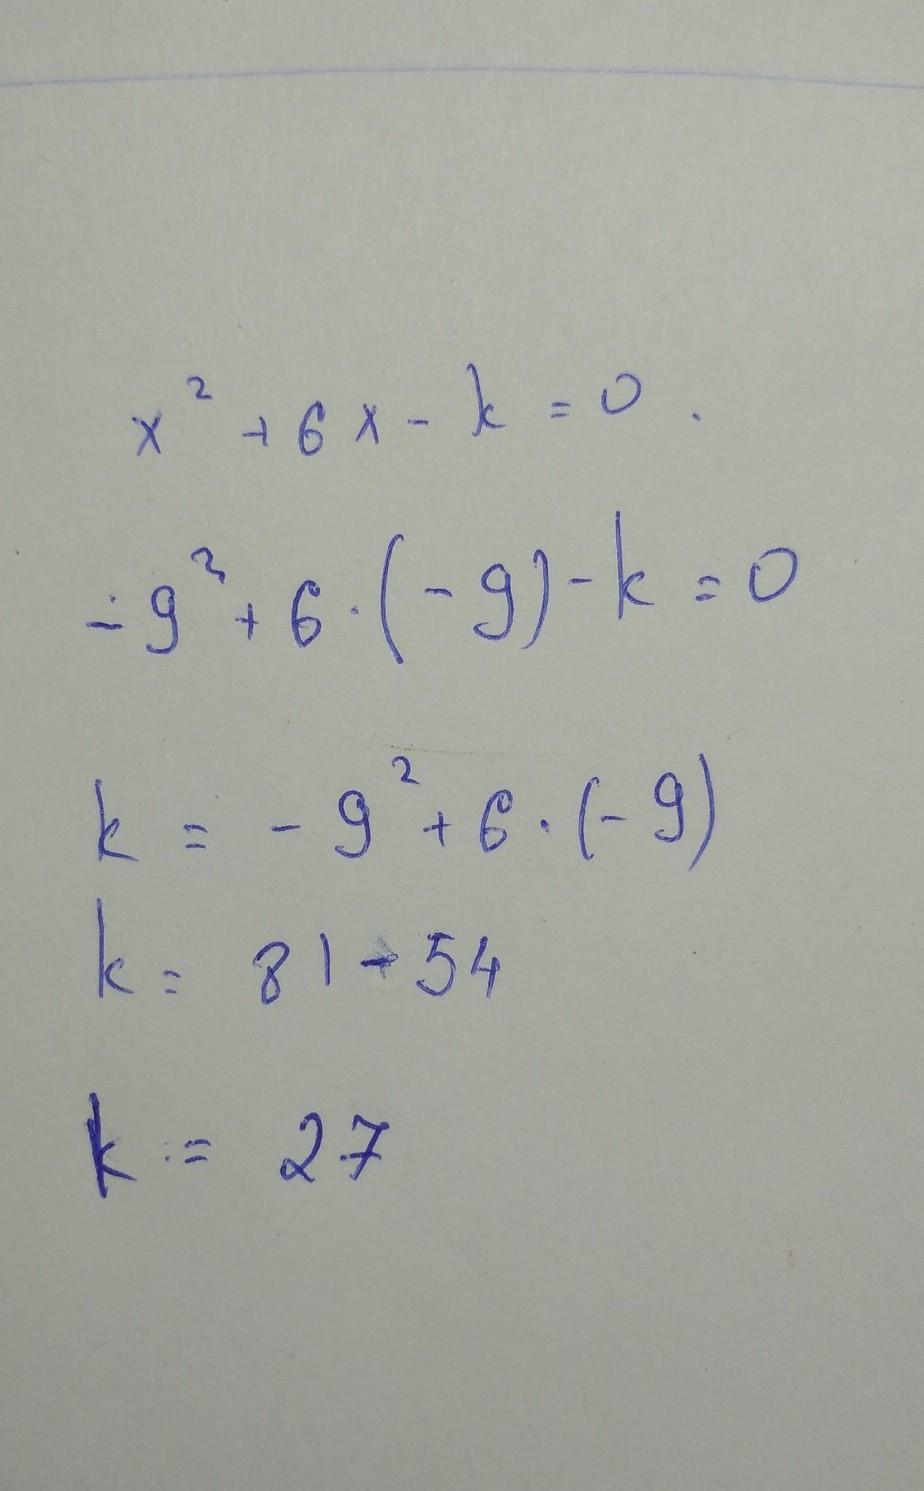 x² + 6x - k = 0.
-9² + 6·(-9) - k = 0
k = -9² + 6·(-9)
k = 81 - 54
k = 27